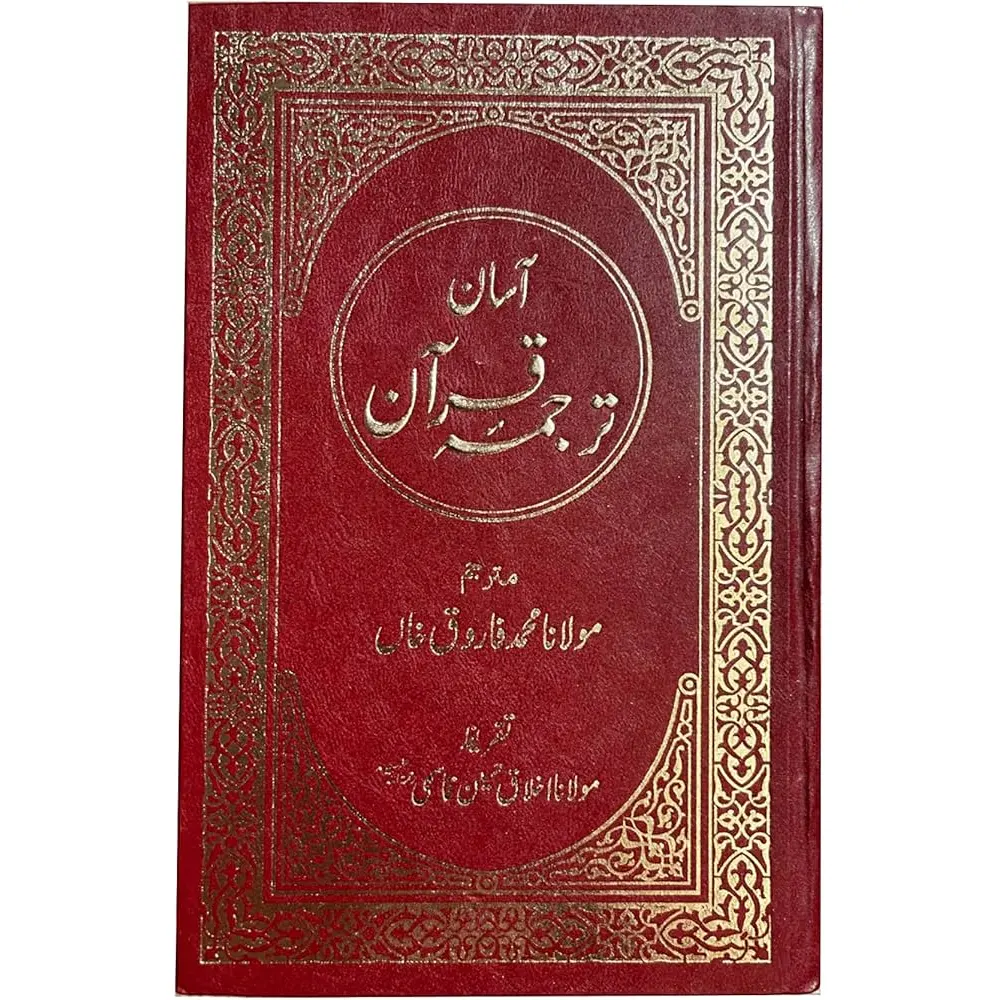 آسان
ترجمۂ قرآن
مترجم
مولانا محمد فاروق خاں
تقریظ
مولانا اخلاق حسین قاسمی